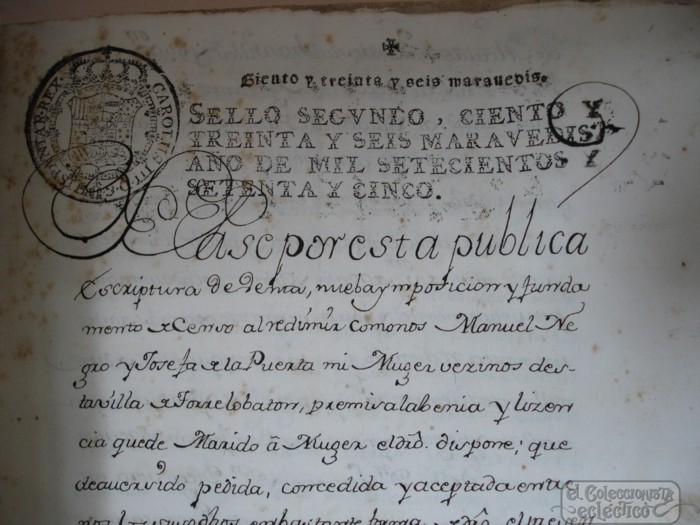 Ciento y treinta y seis maravedis.
SELLO SEGVNDO, CIENTO Y
TREINTA Y SEIS MARAVEDIS,
AÑO DE MIL SETECIENTOS Y
SETENTA Y CINCO.
CAROLUS III D.G. HISPANIAR. REX
Sase por esta publica
Escriptura de Venta, nueba ymposicion y funda
mento de Censo al redimir como nos Manuel Ne
gro y Josefa de la Puerta mi Muger vezinos des-
ta villa de Torrelobaton, premisa la benia y lizen
cia que de Marido â Muger el dro. dispone; que
de aver sido pedida, concedida y aceptada entre
el Coleccionista
ecléctico